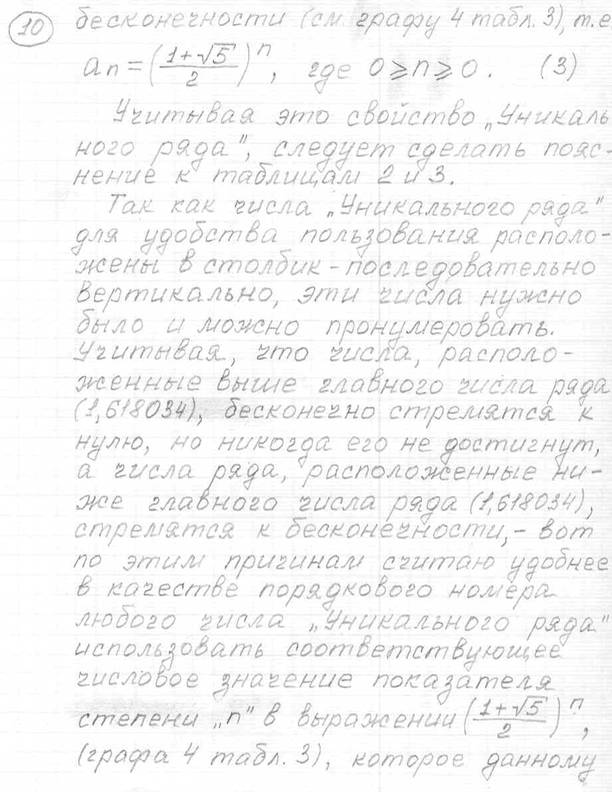 10
бесконечности (см. графу 4 табл. 3), т.е
aₙ = ((1+√5)/2)ⁿ, где 0⩾n⩾0. (3)
Учитывая это свойство „Уникаль-
ного ряда", следует сделать пояс-
нение к таблицам 2 и 3.
Так как числа „Уникального ряда"
для удобства пользования располо-
жены в столбик - последовательно
вертикально, эти числа нужно
было и можно пронумеровать.
Учитывая, что числа, располо-
женные выше главного числа ряда
(1,618034), бесконечно стремятся к
нулю, но никогда его не достигнут,
а числа ряда, расположенные ни-
же главного числа ряда (1,618034),
стремятся к бесконечности, - вот
по этим причинам считаю удобнее
в качестве порядкового номера
любого числа „Уникального ряда"
использовать соответствующее
числовое значение показателя
степени „n" в выражении ((1+√5)/2)ⁿ,
(графа 4 табл. 3), которое данному